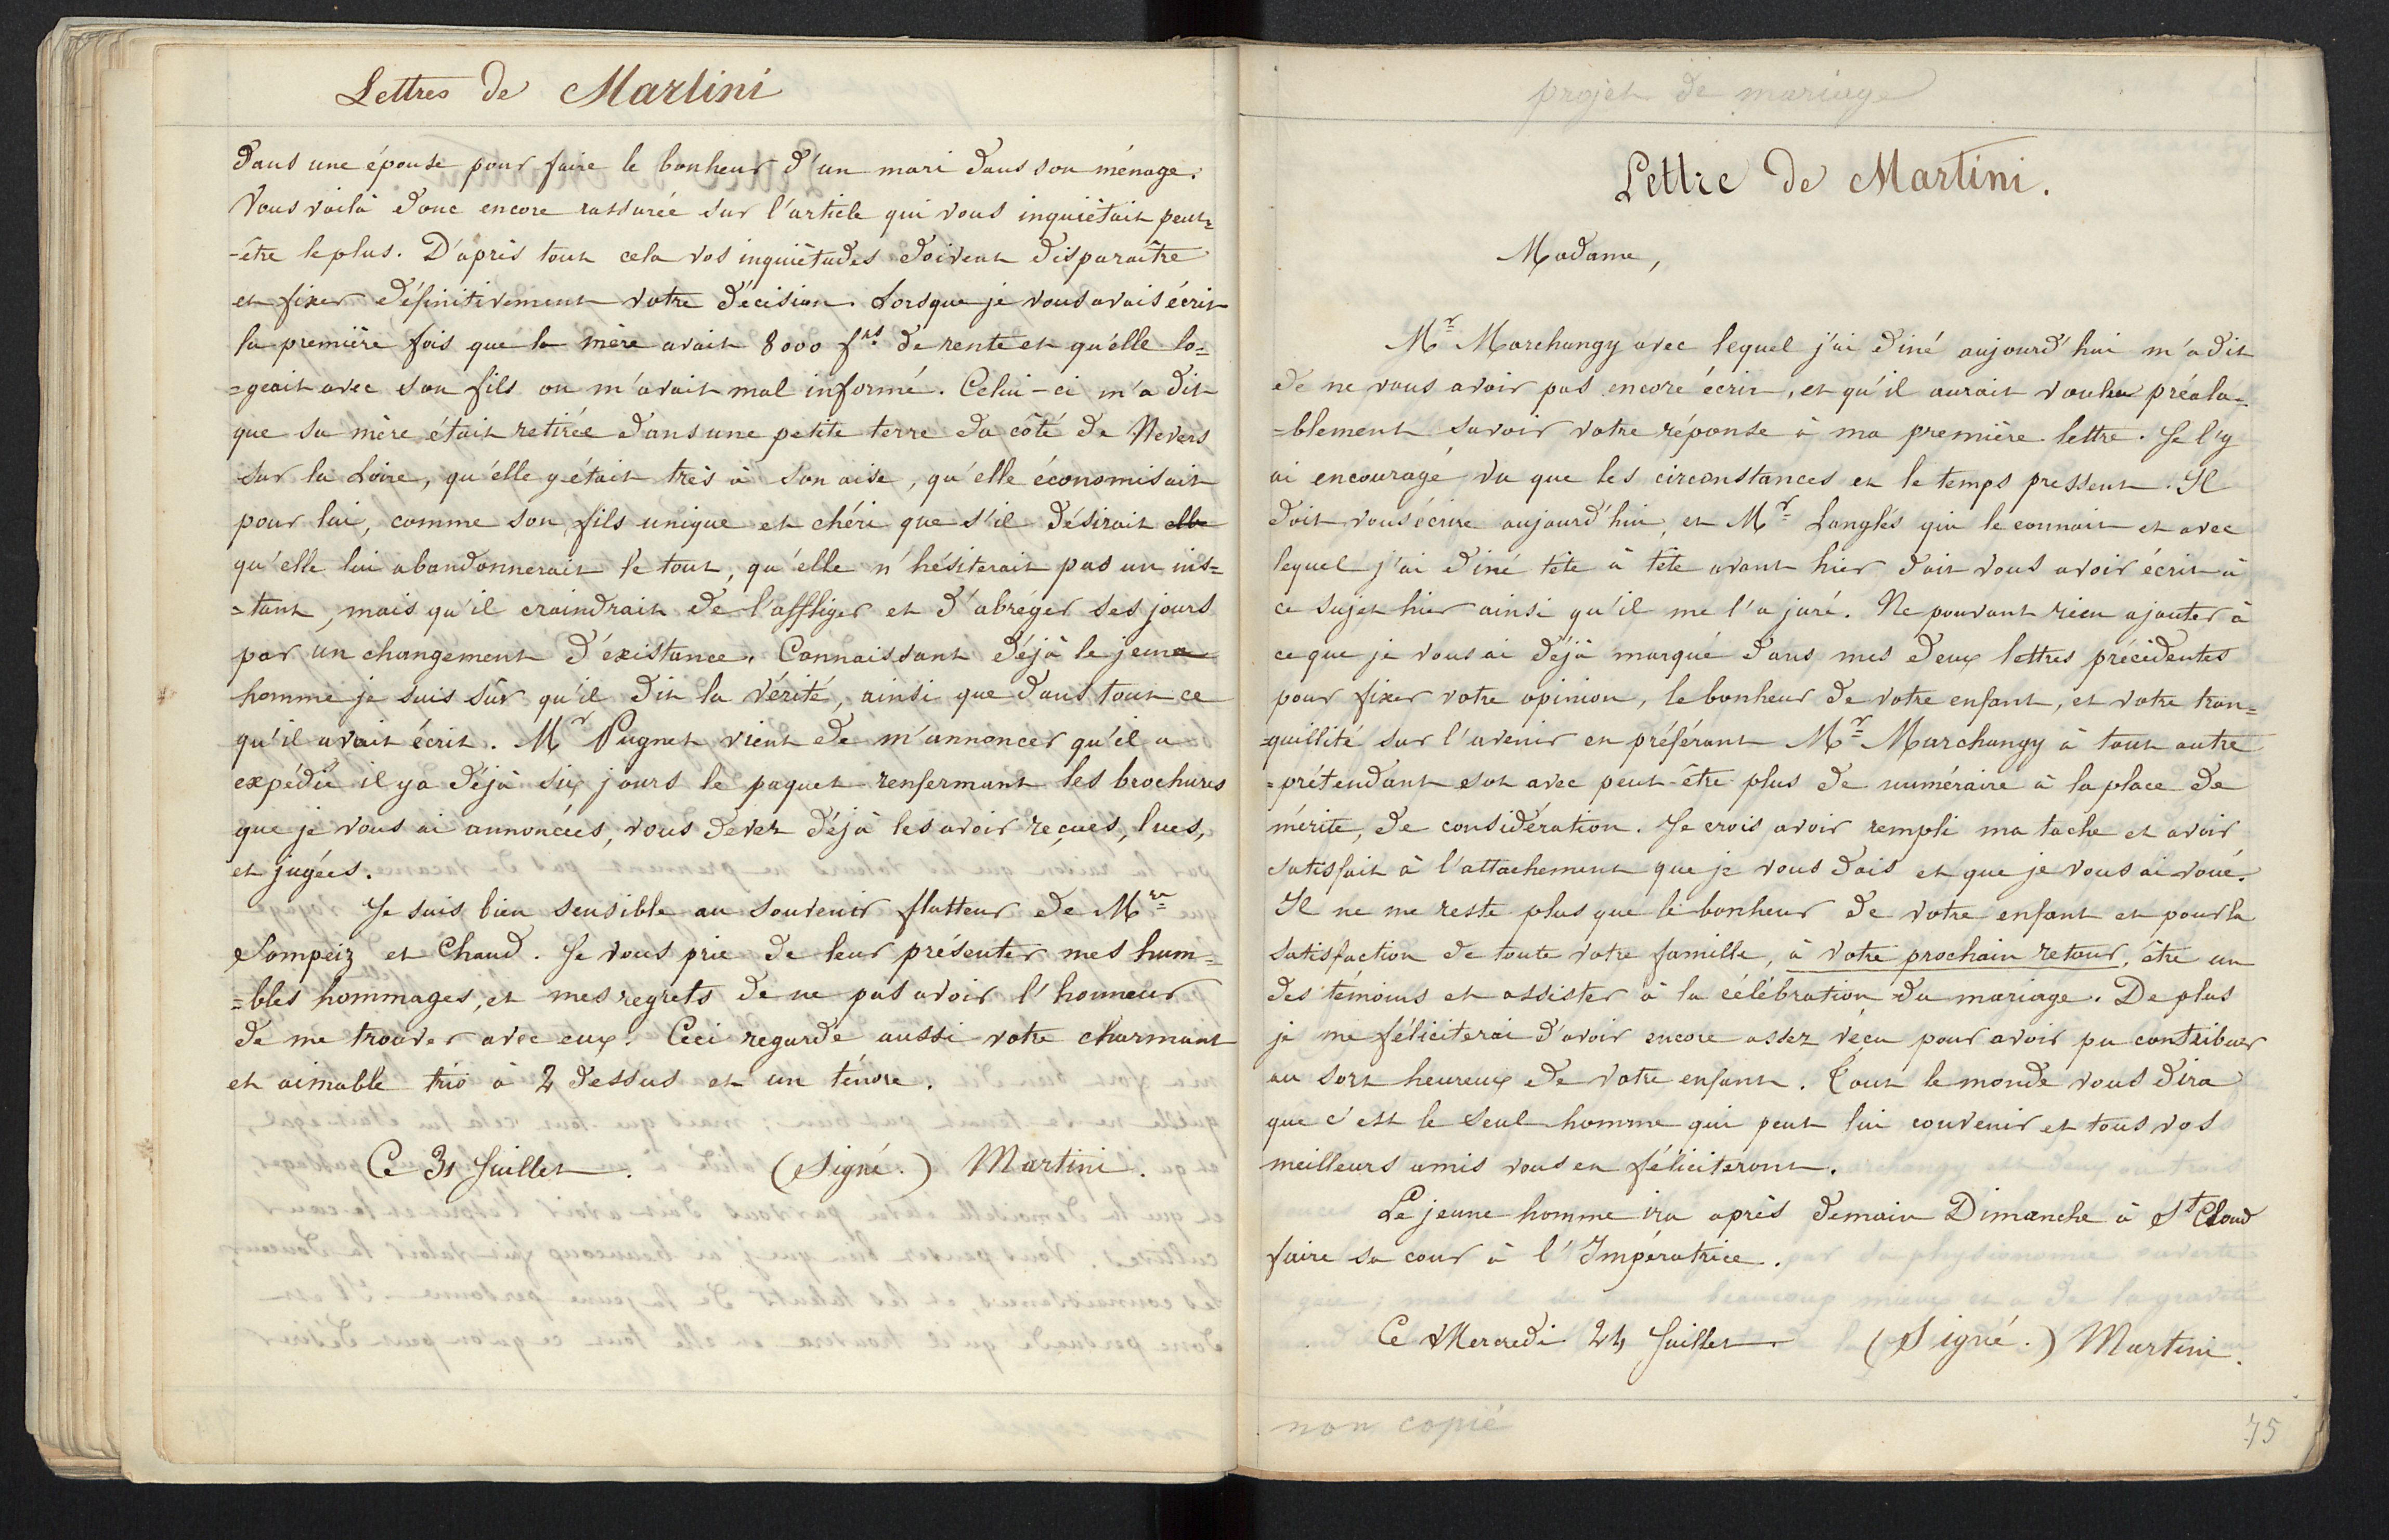 Lettres de Martini
dans une épouse pour faire le bonheur d'un mari dans son ménage.
Vous voilà donc encore rassurée sur l'article qui vous inquiètait peut=
-être le plus. D'après tout cela vos inquiètudes doivent disparaître
et fixer définitivement votre décision. Lorsque je vous avais écrit
la première fois que la mère avait 8000 frs de rente et qu'elle lo=
=geait avec son fils on m'avait mal informé. Celui-ci m'a dit
que sa mère était retirée dans une petite terre du côté de Nevers
sur la Loire, qu'elle y était très à son aise, qu'elle économisait
pour lui, comme son fils unique et chéri que s'il désirait elle
qu'elle lui abandonnerait le tout, qu'elle n'hésiterait pas un ins=
=tant, mais qu'il craindrait de l'affliger et d'abréger ses jours
par un changement d'éxistance. Connaissant déjà le jeune
homme je suis sûr qu'il dit la vérité, ainsi que dans tout ce
qu'il avait écrit. Mr Pugnet vient de m'annoncer qu'il a
expédié il y a déjà six jours le paquet renfermant les brochures
que je vous ai annoncées, vous devez déjà les avoir reçues, lues,
et jugées.
Je suis bien sensible au souvenir flatteur de Mrs
Sompeiz et Chaud. Je vous prie de leur présenter mes hum=
=bles hommages, et mes regrets de ne pas avoir l'honneur
de me trouver avec eux. Ceci regarde aussi votre charmant
et aimable trio à 2 dessus et un ténore.
Ce 31 Juillet. (Signé.) Martini.
projet de mariage
Lettre de Martini.
Madame,
Mr Marchangy avec lequel j'ai diné aujourd'hui m'a dit
de ne vous avoir pas encore écrit, et qu'il aurait voulu préala=
=blement savoir votre réponse à ma première lettre. Je l'y
ai encouragé vu que les circonstances et le temps pressent. Il
doit vous écrire aujourd'hui, et Mr Langlés qui le connait et avec
lequel j'ai diné tête à tête avant hier doit vous avoir écrit à
ce sujet hier ainsi qu'il me l'a juré. Ne pouvant rien ajouter à
ce que je vous ai déjà marqué dans mes deux lettres précédentes
pour fixer votre opinion, le bonheur de votre enfant, et votre tran=
=quillité sur l'avenir en préférant Mr Marchangy à tout autre
=prétendant sot avec peut-être plus de numéraire à la place de
mérite, de considération. Je crois avoir rempli ma tache et avoir
satisfait à l'attachement que je vous dois et que je vous ai voué.
Il ne me reste plus que le bonheur de votre enfant et pour la
satisfaction de toute votre famille, à votre prochain retour, être un
des témoins et assister à la célébration du mariage. De plus
je me féliciterai d'avoir encore assez vécu pour avoir pu contribuer
au sort heureux de votre enfant. Tout le monde vous dira
que c'est le seul homme qui peut lui convenir et tous vos
meilleurs amis vous en féliciteront.
Le jeune homme ira après demain Dimanche à St Cloud
faire sa cour à l'Impératrice.
Ce Mercredi 24 Juillet (Signé.) Martini.
non copié
75